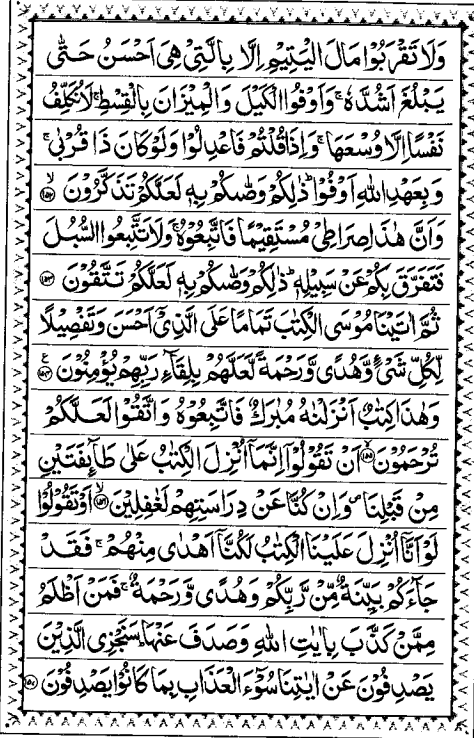 وَلَا تَقْرَبُوْا مَالَ الْيَتِيْمِ اِلَّا بِالَّتِيْ هِيَ اَحْسَنُ حَتّٰى
يَبْلُغَ اَشُدَّهٗ ۚ وَاَوْفُوا الْكَيْلَ وَالْمِيْزَانَ بِالْقِسْطِ ۚ لَا نُكَلِّفُ
نَفْسًا اِلَّا وُسْعَهَا ۚ وَاِذَا قُلْتُمْ فَاعْدِلُوْا وَلَوْ كَانَ ذَا قُرْبٰى ۚ
وَبِعَهْدِ اللّٰهِ اَوْفُوْا ؕ ذٰلِكُمْ وَصّٰىكُمْ بِهٖ لَعَلَّكُمْ تَذَكَّرُوْنَ ۙ﴿۱۵۲﴾
وَاَنَّ هٰذَا صِرَاطِيْ مُسْتَقِيْمًا فَاتَّبِعُوْهُ ۚ وَلَا تَتَّبِعُوا السُّبُلَ
فَتَفَرَّقَ بِكُمْ عَنْ سَبِيْلِهٖ ؕ ذٰلِكُمْ وَصّٰىكُمْ بِهٖ لَعَلَّكُمْ تَتَّقُوْنَ ﴿۱۵۳﴾
ثُمَّ اٰتَيْنَا مُوْسَى الْكِتٰبَ تَمَامًا عَلَى الَّذِيْۤ اَحْسَنَ وَتَفْصِيْلًا
لِّكُلِّ شَيْءٍ وَّهُدًى وَّرَحْمَةً لَّعَلَّهُمْ بِلِقَآءِ رَبِّهِمْ يُؤْمِنُوْنَ ﴿۱۵۴﴾ ع
وَهٰذَا كِتٰبٌ اَنْزَلْنٰهُ مُبٰرَكٌ فَاتَّبِعُوْهُ وَاتَّقُوْا لَعَلَّكُمْ
تُرْحَمُوْنَ ﴿۱۵۵﴾ اَنْ تَقُوْلُوْۤا اِنَّمَاۤ اُنْزِلَ الْكِتٰبُ عَلٰى طَآئِفَتَيْنِ
مِنْ قَبْلِنَا ۪ وَاِنْ كُنَّا عَنْ دِرَاسَتِهِمْ لَغٰفِلِيْنَ ﴿۱۵۶﴾ اَوْ تَقُوْلُوْا
لَوْ اَنَّاۤ اُنْزِلَ عَلَيْنَا الْكِتٰبُ لَكُنَّاۤ اَهْدٰى مِنْهُمْ ۚ فَقَدْ
جَآءَكُمْ بَيِّنَةٌ مِّنْ رَّبِّكُمْ وَهُدًى وَّرَحْمَةٌ ۚ فَمَنْ اَظْلَمُ
مِمَّنْ كَذَّبَ بِاٰيٰتِ اللّٰهِ وَصَدَفَ عَنْهَا ؕ سَنَجْزِي الَّذِيْنَ
يَصْدِفُوْنَ عَنْ اٰيٰتِنَا سُوْٓءَ الْعَذَابِ بِمَا كَانُوْا يَصْدِفُوْنَ ﴿۱۵۷﴾